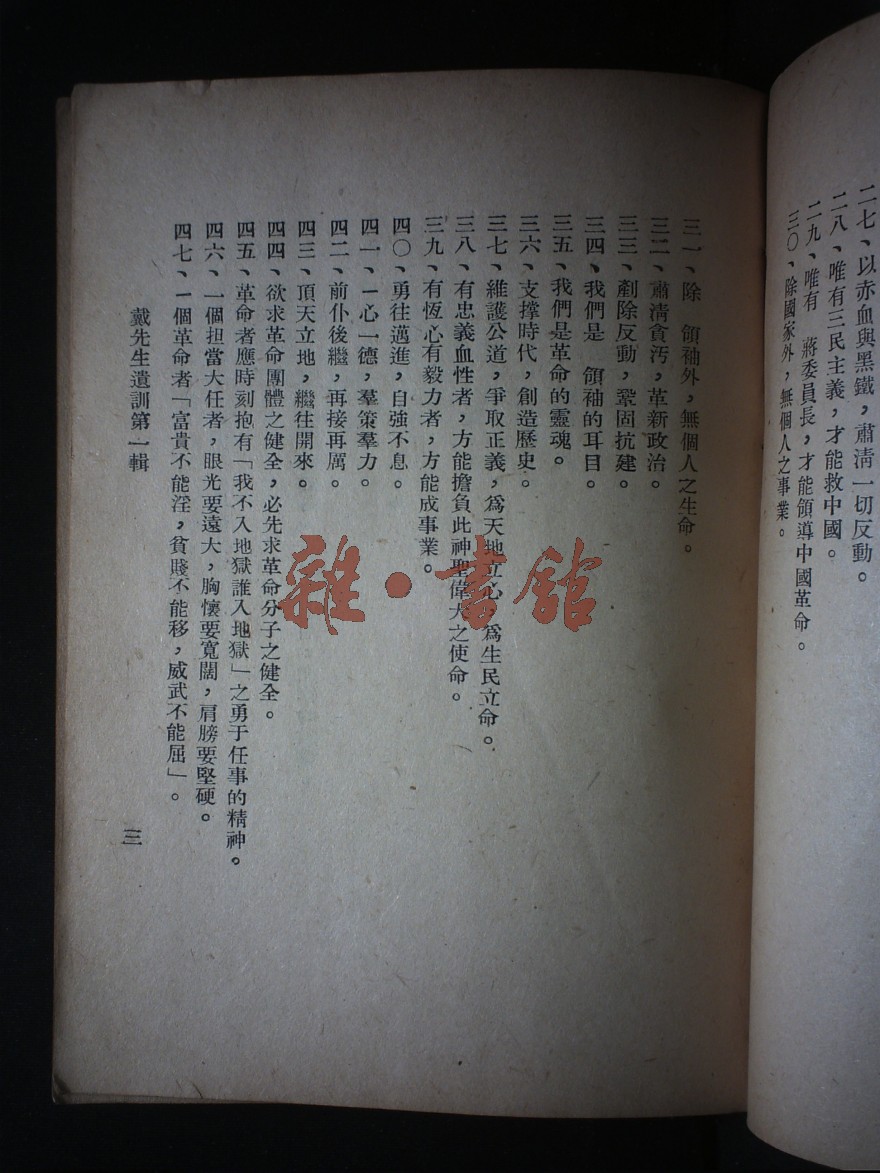 二七、以赤血與黑鐵，肅清一切反動。
二八、唯有三民主義，才能救中國。
二九、唯有　蔣委員長，才能領導中國革命。
三〇、除國家外，無個人之事業。
三一、除　領袖外，無個人之生命。
三二、肅清貪汚，革新政治。
三三、剷除反動，鞏固抗建。
三四、我們是　領袖的耳目。
三五、我們是革命的靈魂。
三六、支撐時代，創造歷史。
三七、維護公道，爭取正義，爲天地立心，爲生民立命。
三八、有忠義血性者，方能擔負此神聖偉大之使命。
三九、有恆心有毅力者，方能成事業。
四〇、勇往邁進，自強不息。
四一、一心一德，羣策羣力。
四二、前仆後繼，再接再厲。
四三、頂天立地，繼往開來。
四四、欲求革命團體之健全，必先求革命分子之健全。
四五、革命者應時刻抱有「我不入地獄誰入地獄」之勇于任事的精神。
四六、一個担當大任者，眼光要遠大，胸懷要寬闊，肩膀要堅硬。
四七、一個革命者「富貴不能淫，貧賤不能移，威武不能屈」。
戴先生遺訓第一輯
三
雜·書館